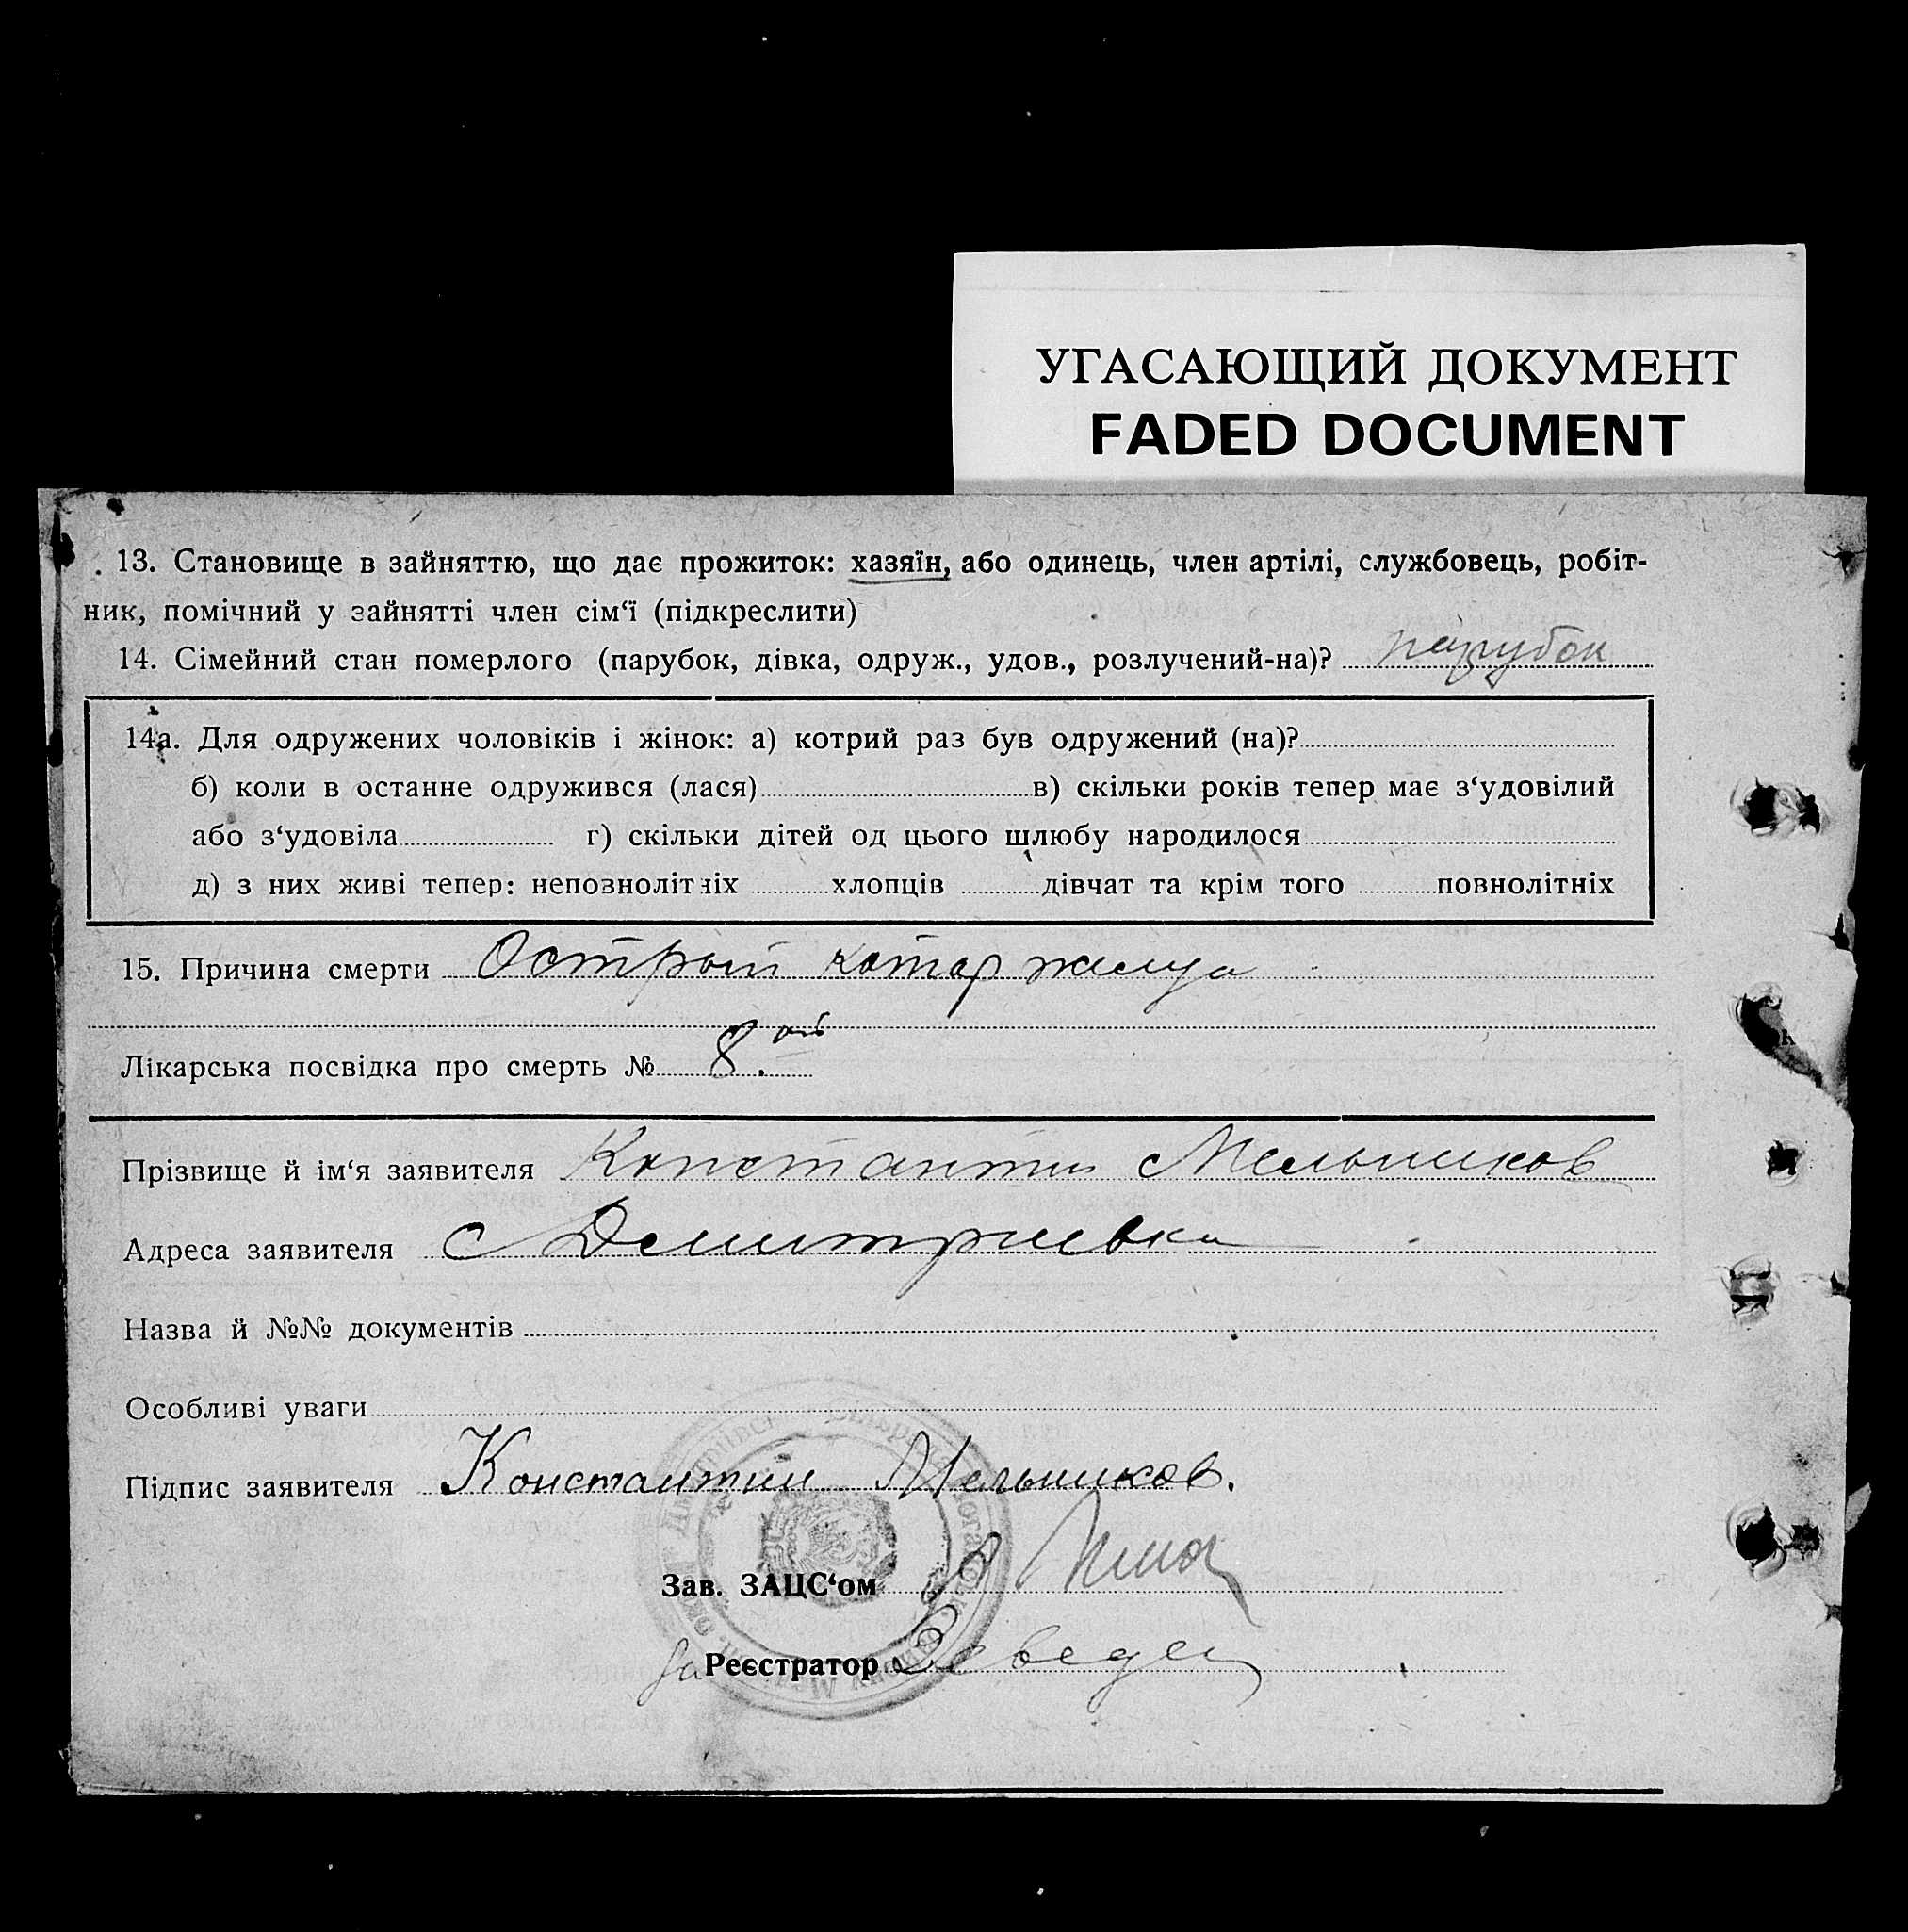 УГАСАЮЩИЙ ДОКУМЕНТ
FADED DOCUMENT
13. Становище в зайняттю, що дає прожиток: хазяїн, або одинець, член артілі, службовець, робіт-
ник, помічний у зайнятті член сім‘ї (підкреслити)
14. Сімейний стан померлого (парубок, дівка, одруж., удов., розлучений-на)? парубок
14а. Для одружених чоловіків і жінок: а) котрий раз був одружений (на)?
б) коли в останне одружився (лася) в) скільки років тепер має з‘удовілий
або з‘удовіла г) скільки дітей од цього шлюбу народилося
д) з них живі тепер: неповнолітніх хлопців дівчат та крім того повнолітніх
15. Причина смерти Острый котар
Лікарська посвідка про смерть № 8.
Прізвище й ім‘я заявителя Константин Мельников
Адреса заявителя с Дмитриевка
Назва й №№ документів
Особливі уваги
Підпис заявителя Константин Мельников.
Зав. ЗАЦС‘ом
за Реєстратор